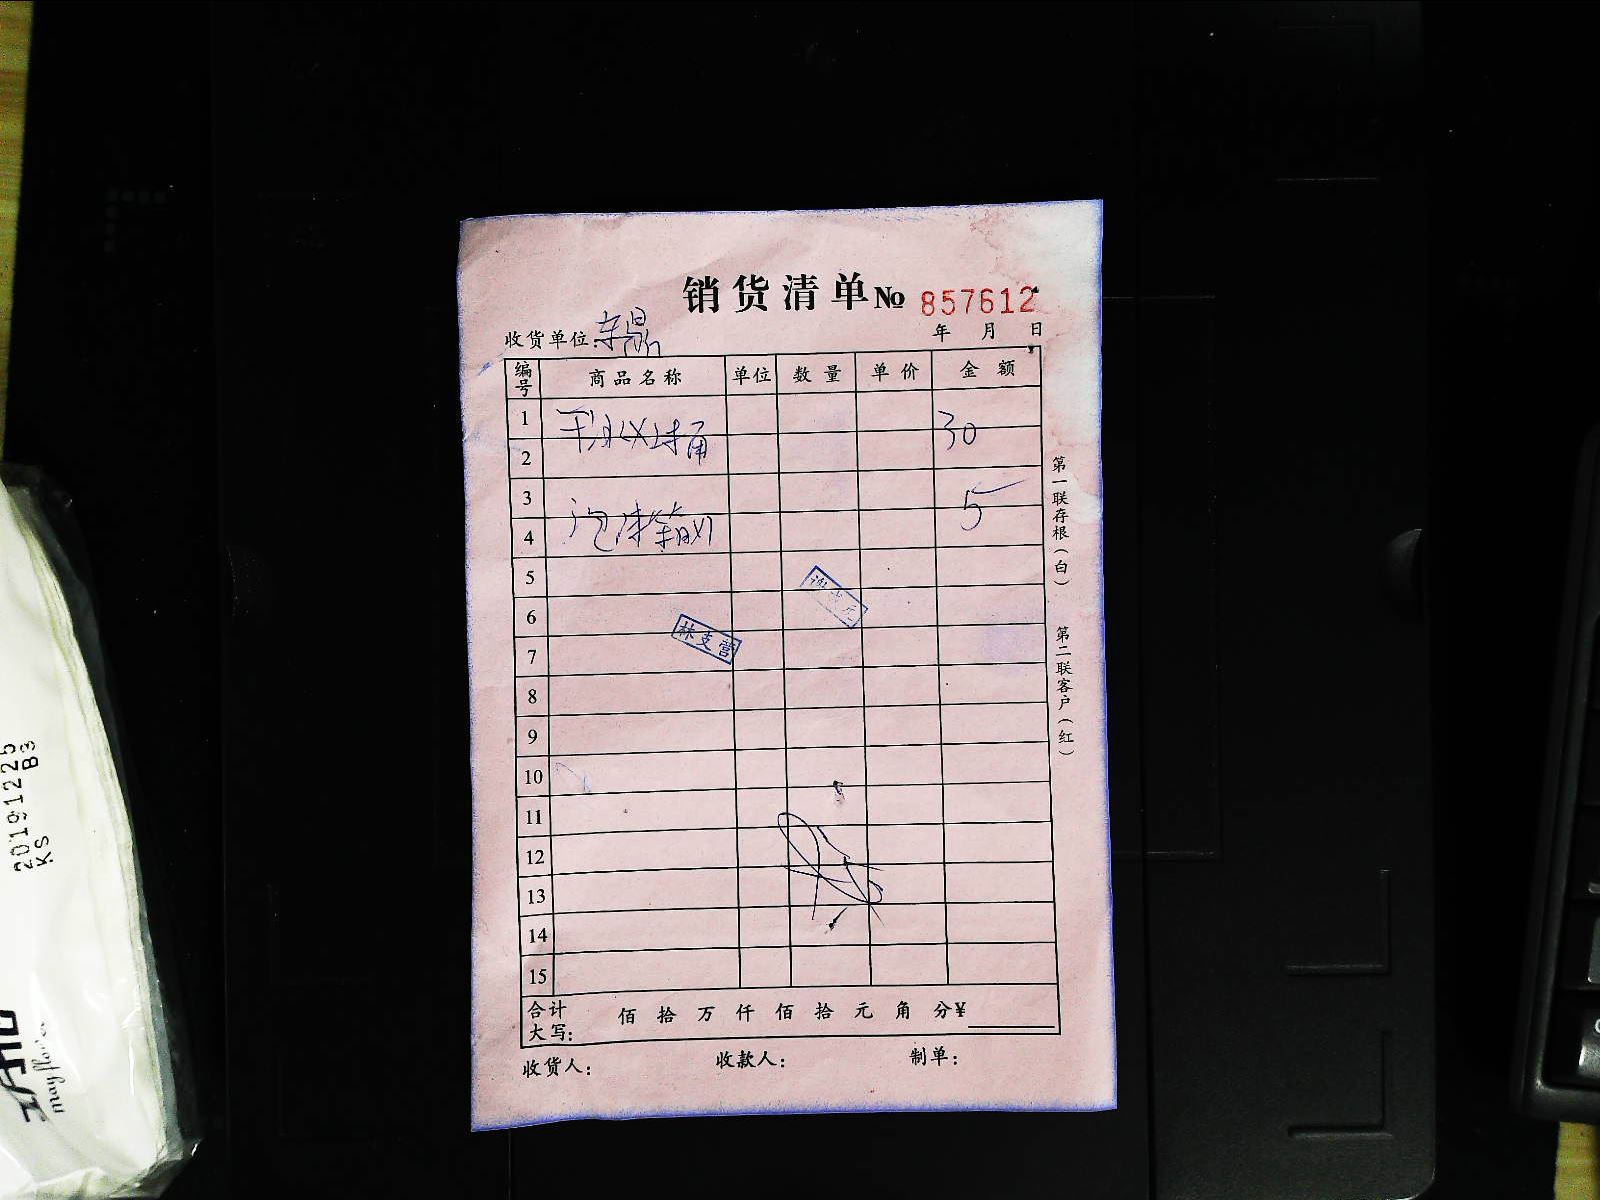 销货清单№ 857612
收货单位: 东鼎
年 月 日
编号 商品名称 单位 数量 单价 金额
1
30
2
3
泡沫箱 5
4
5
6
林支营
7
8
9
10
11
12
13
14
15
合计大写: 佰 拾 万 仟 佰 拾 元 角 分 ¥
收货人: 收款人: 制单:
第一联存根(白) 第二联客户(红)
20191225
B3
KS